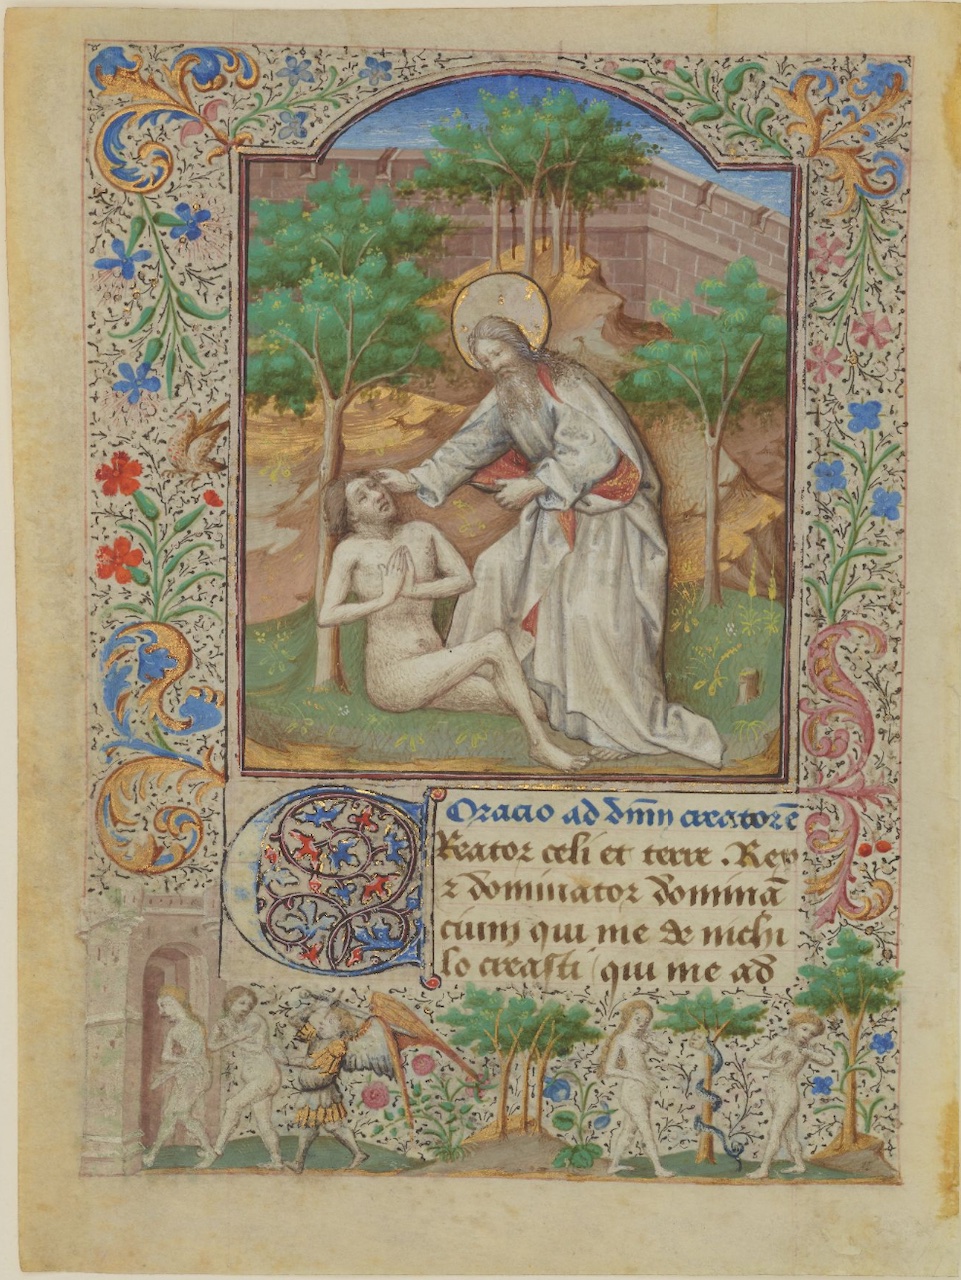 Oracio ad dm̄m creatorē
Creator celi et terre . Rex
⁊ dominator dominā
cium qui me de nichi
lo creasti qui me ad